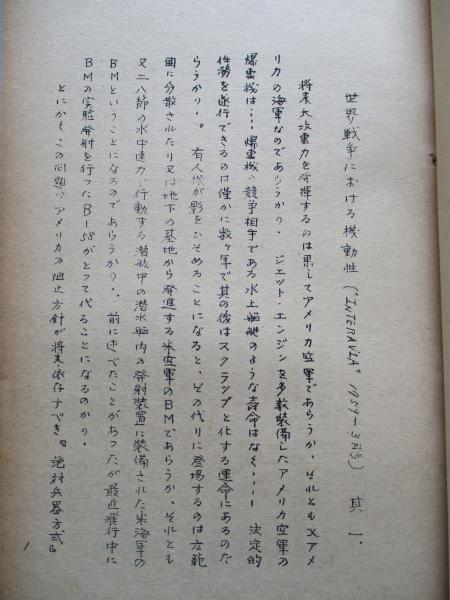 世界戦争における機動性（"INTERAVIA" 1959－3月号） 其一、
将来大攻撃力を発揮するのは果してアメリカ空軍であらうか、それとも又アメ
リカの海軍なのであらうか？ ジェット・エンジンを多数装備したアメリカ空軍の
爆撃機は‥‥爆撃機の競争相手である水上艦艇のような寿命はなく‥‥ 決定的
任務を遂行できるのは僅かに数ヶ年で其の後はスクラップと化する運命にあるのだ
らうか？。 有人機が影をひそめることになると、その代りに登場するのは広範
囲に分散されたり又は地下の基地から発進する米空軍のBMであらうか、それとも
又二八節の水中速力で行動する潜航中の潜水艦内の発射装置に装備された米海軍の
BMということになるのであらうか？、前に述べたことがあったが最近飛行中に
BMの実験発射を行ったB－58がとって代ることになるのか？・
とにかくこの問題はアメリカの阻止方針が将来依存すべき『絶対兵器方式』
1